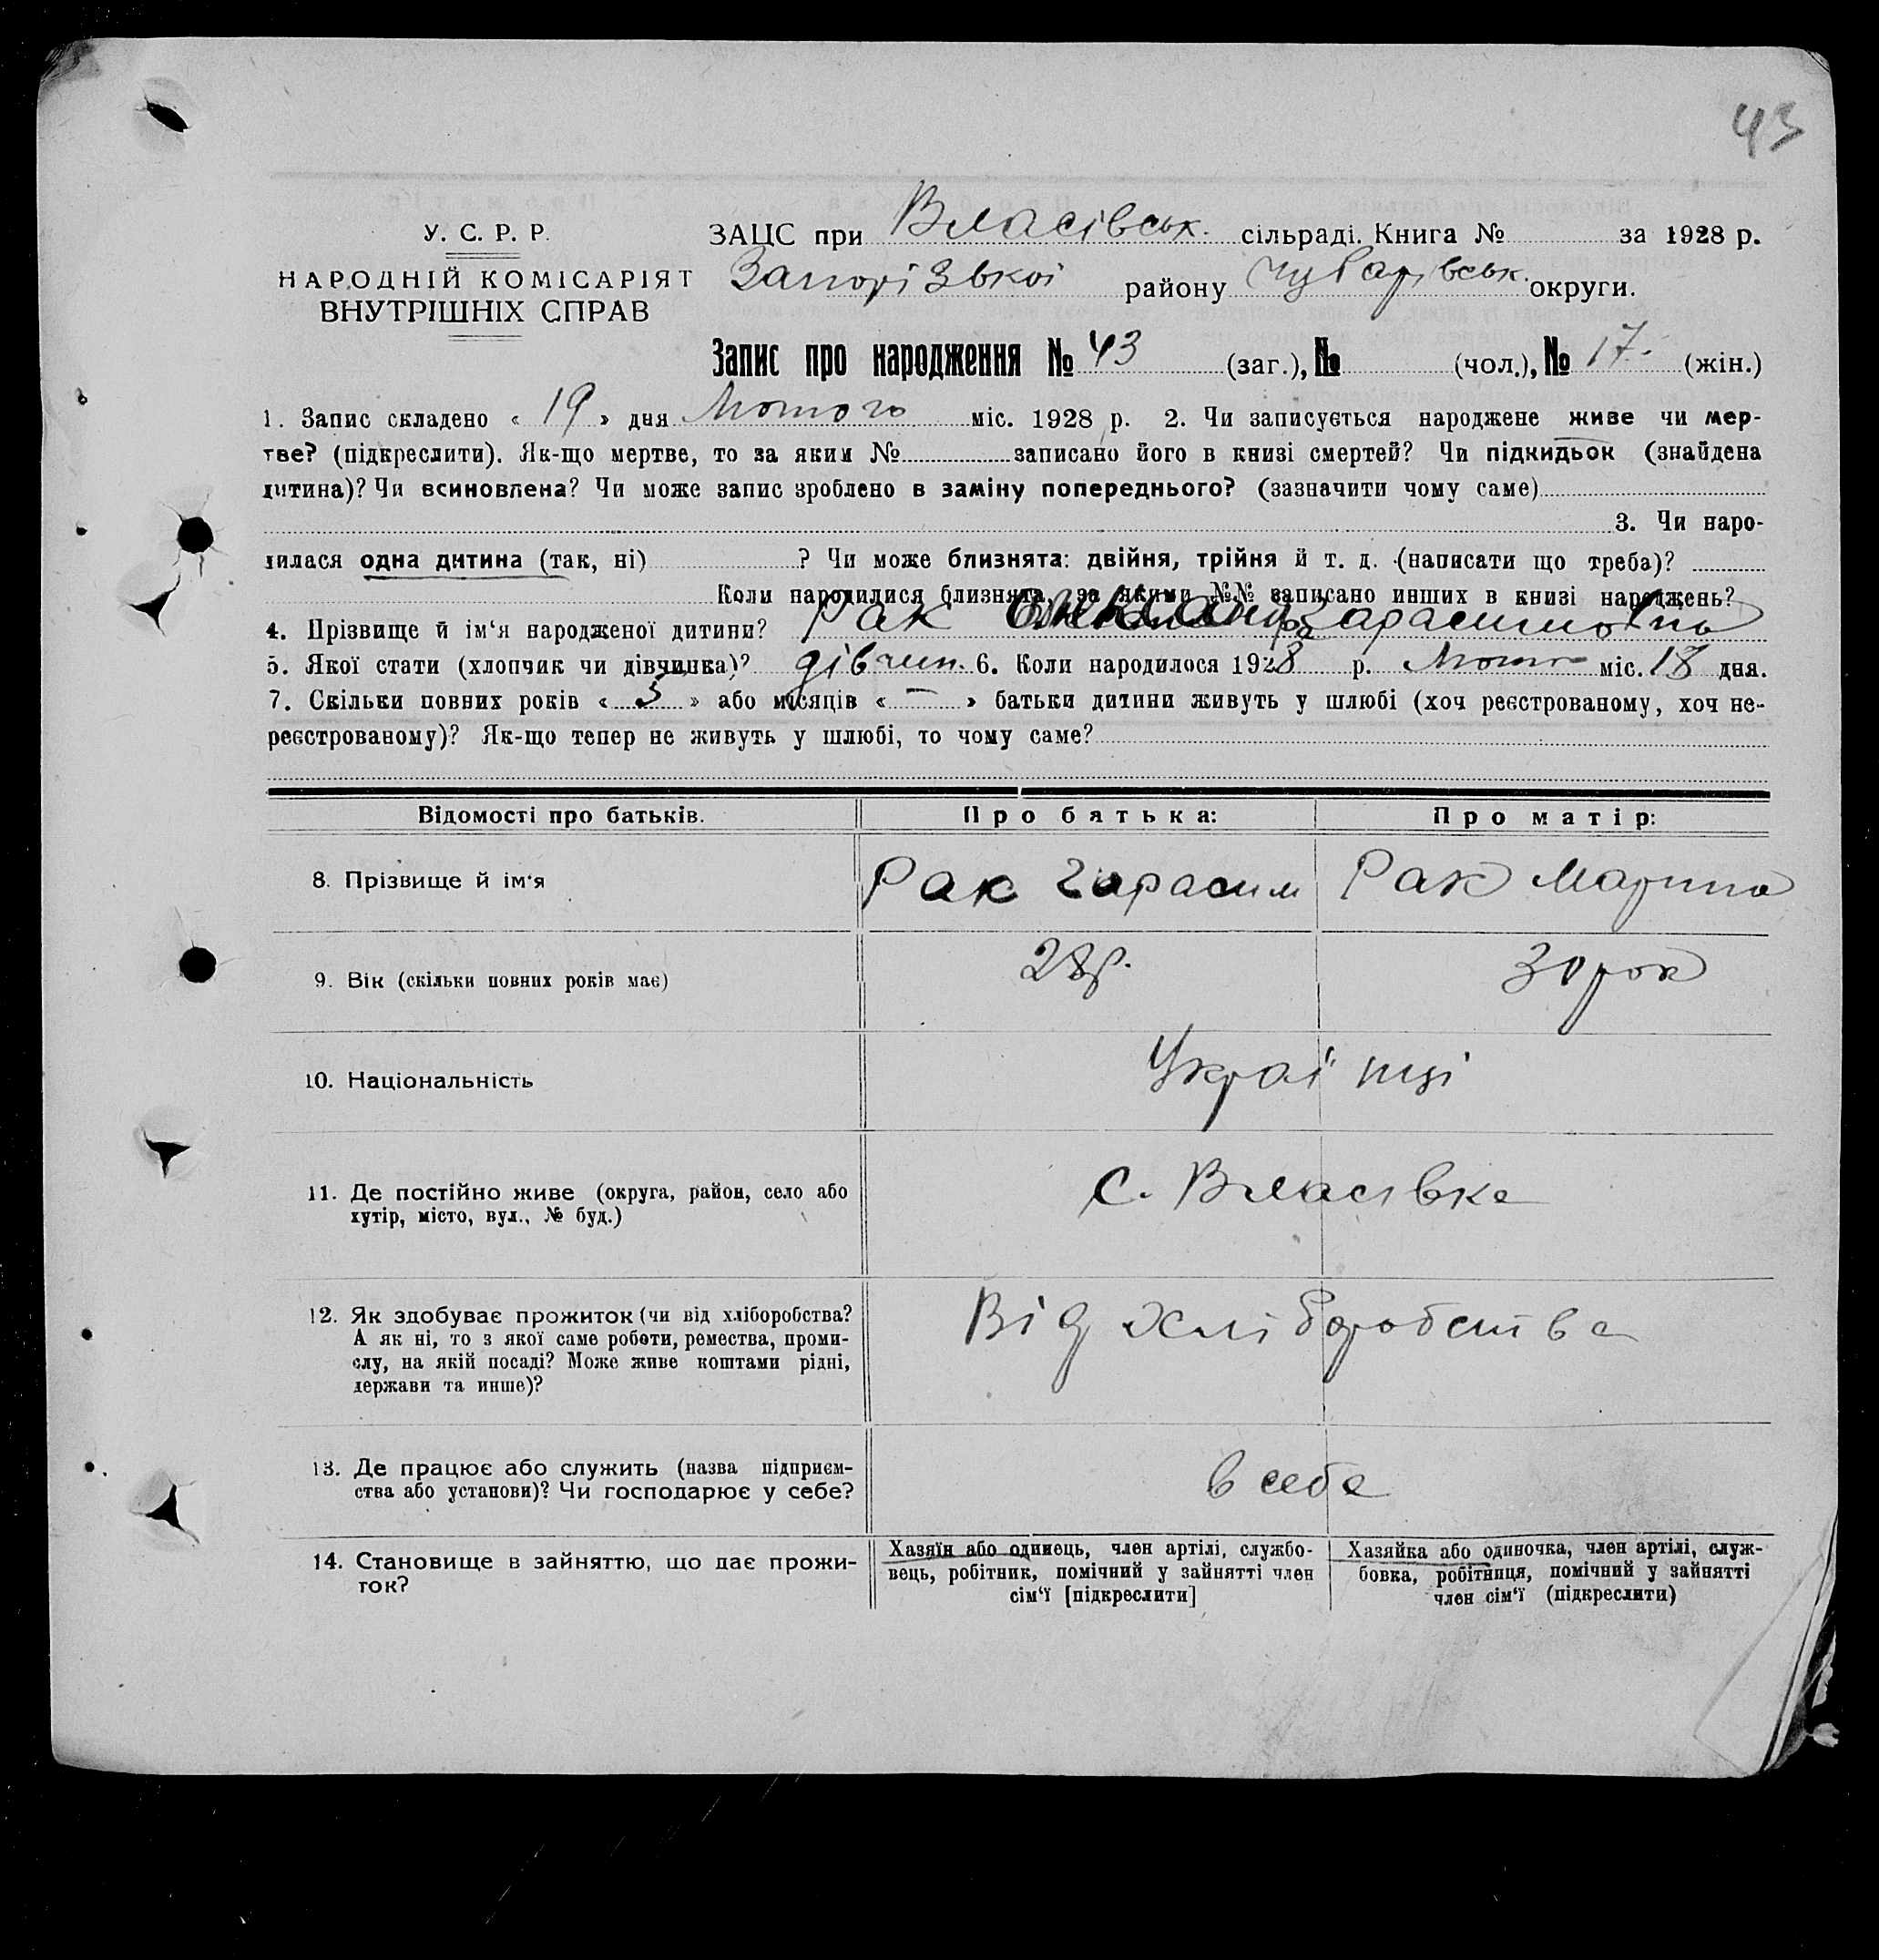 43
У. С. Р. Р.
НАРОДНІЙ КОМІСАРІЯТ
ВНУТРІШНІХ СПРАВ
ЗАЦС при Власівськ. сільраді. Книга № за 1928 р.
Запорізької району Чубарівськ. округи.
Запис про народження № 43 (заг.), № (чол.), № 17. (жін.)
1. Запис складено « 19 » дня Лютого міс. 1928 р. 2. Чи записується народжене живе чи мер-
тве? (підкреслити). Як-що мертве, то за яким № записано його в книзі смертей? Чи підкидьок (знайдена
дитина)? Чи всиновлена? Чи може запис зроблено в заміну попереднього? (зазначити чому саме)
3. Чи наро-
дилася одна дитина (так, ні) ? Чи може близнята: двійня, трійня й т. д. (написати що треба)?
Коли народилися близнята, за якими №№ записано инших в книзі народжень?
4. Прізвище й ім‘я народженої дитини? Рак Олександра Гарасимовна
5. Якої стати (хлопчик чи дівчинка)? дівчин. 6. Коли народилося 1928 р. Лютого міс. 18 дня.
7. Скільки повних років « 5 » або місяців « — » батьки дитини живуть у шлюбі (хоч реєстрованому, хоч не-
реєстрованому)? Як-що тепер не живуть у шлюбі, то чому саме?
Відомості про батьків. Про батька: Про матір:
8. Прізвище й ім‘я Рак Гарасим Рак Марина
9. Вік (скільки повних років має) 28 р. 30 рок
10. Національність Українці
11. Де постійно живе (округа, район, село або
хутір, місто, вул., № буд.) с. Власівка
12. Як здобуває прожиток (чи від хліборобства?
А як ні, то з якої саме роботи, ремества, проми-
слу, на якій посаді? Може живе коштами рідні,
держави та инше)? Від хліборобства
13. Де працює або служить (назва підприєм-
ства або установи)? Чи господарює у себе? в себе
14. Становище в зайняттю, що дає прожи-
ток?
Хазяїн або одинець, член артілі, службо-
вець, робітник, помічний у зайнятті член
сім‘ї [підкреслити]
Хазяйка або одиночка, член артілі, служ-
бовка, робітниця, помічний у зайнятті
член сім‘ї (підкреслити)